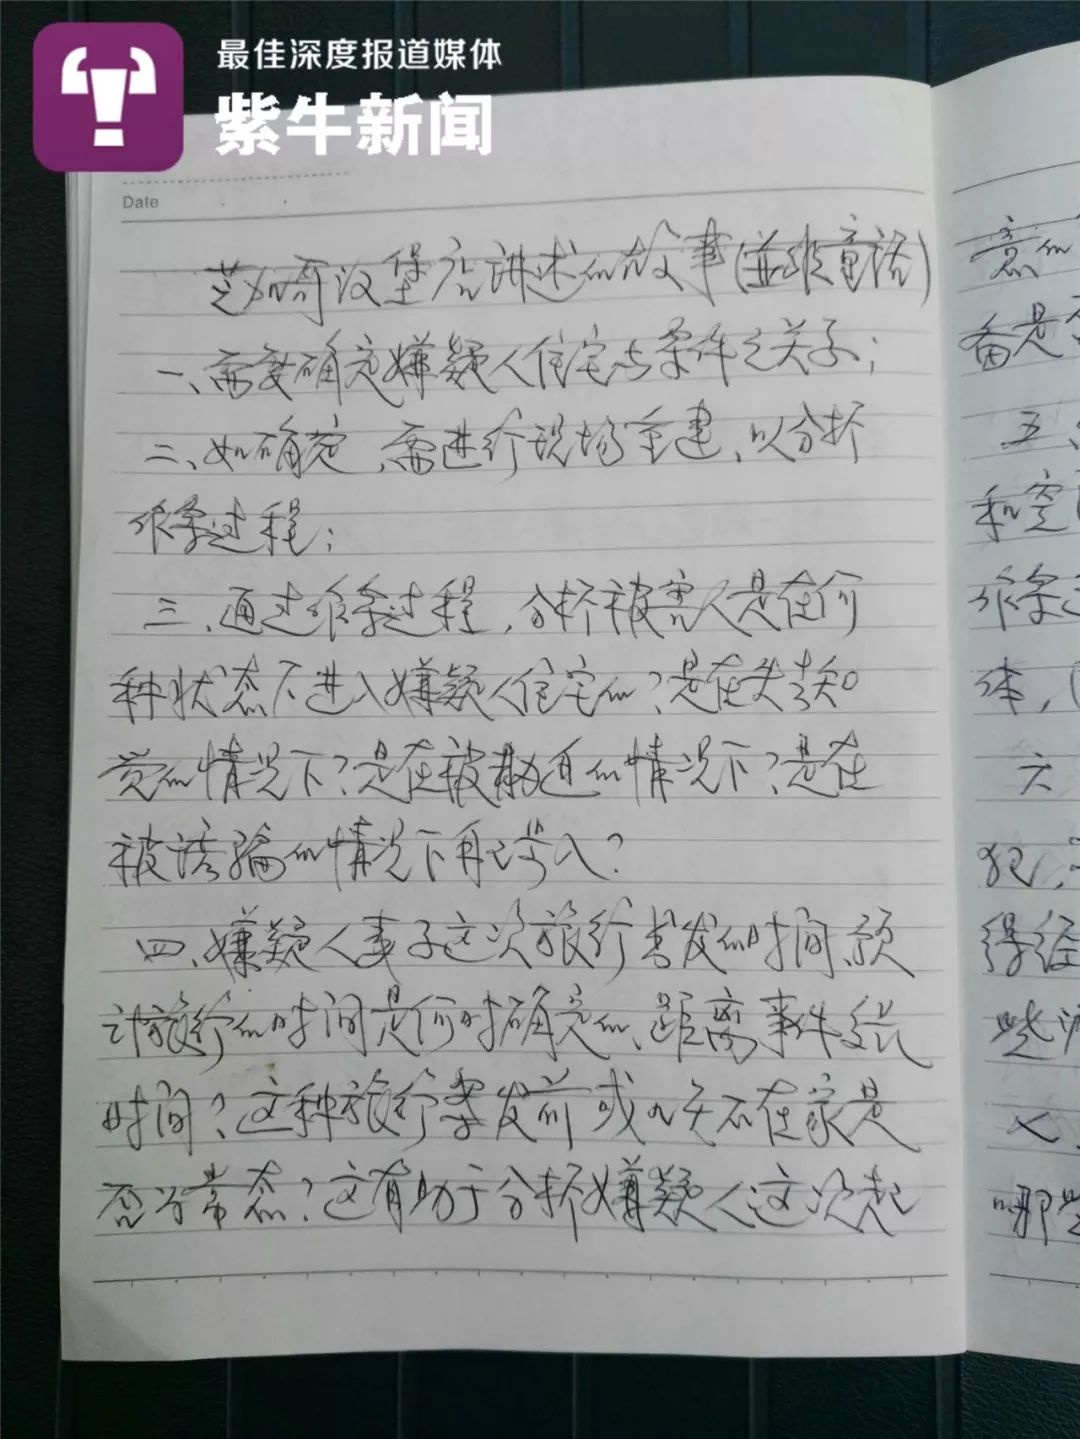 最佳深度报道媒体
紫牛新闻
Date
芝加哥汉堡店讲述的故事(并非童话)
一、需要确定嫌疑人住宅与条件之关系;
二、如确定,需进行现场重建,以分析
作案过程;
三、通过作案过程,分析被害人是在何
种状态下进入嫌疑人住宅的?是在失去知
觉的情况下?是在被胁迫的情况下?是在
被诱骗的情况下再已导入?
四、嫌疑人妻子这次旅行出发的时间,预
计旅行的时间是何时确定的,距离事件多长
时间?这种旅行案发前或几天不在家是
否为常态?这有助于分析嫌疑人这次起
意的
备是
五、
和空
作案过
体,
六
犯,
得经
些
七
哪些